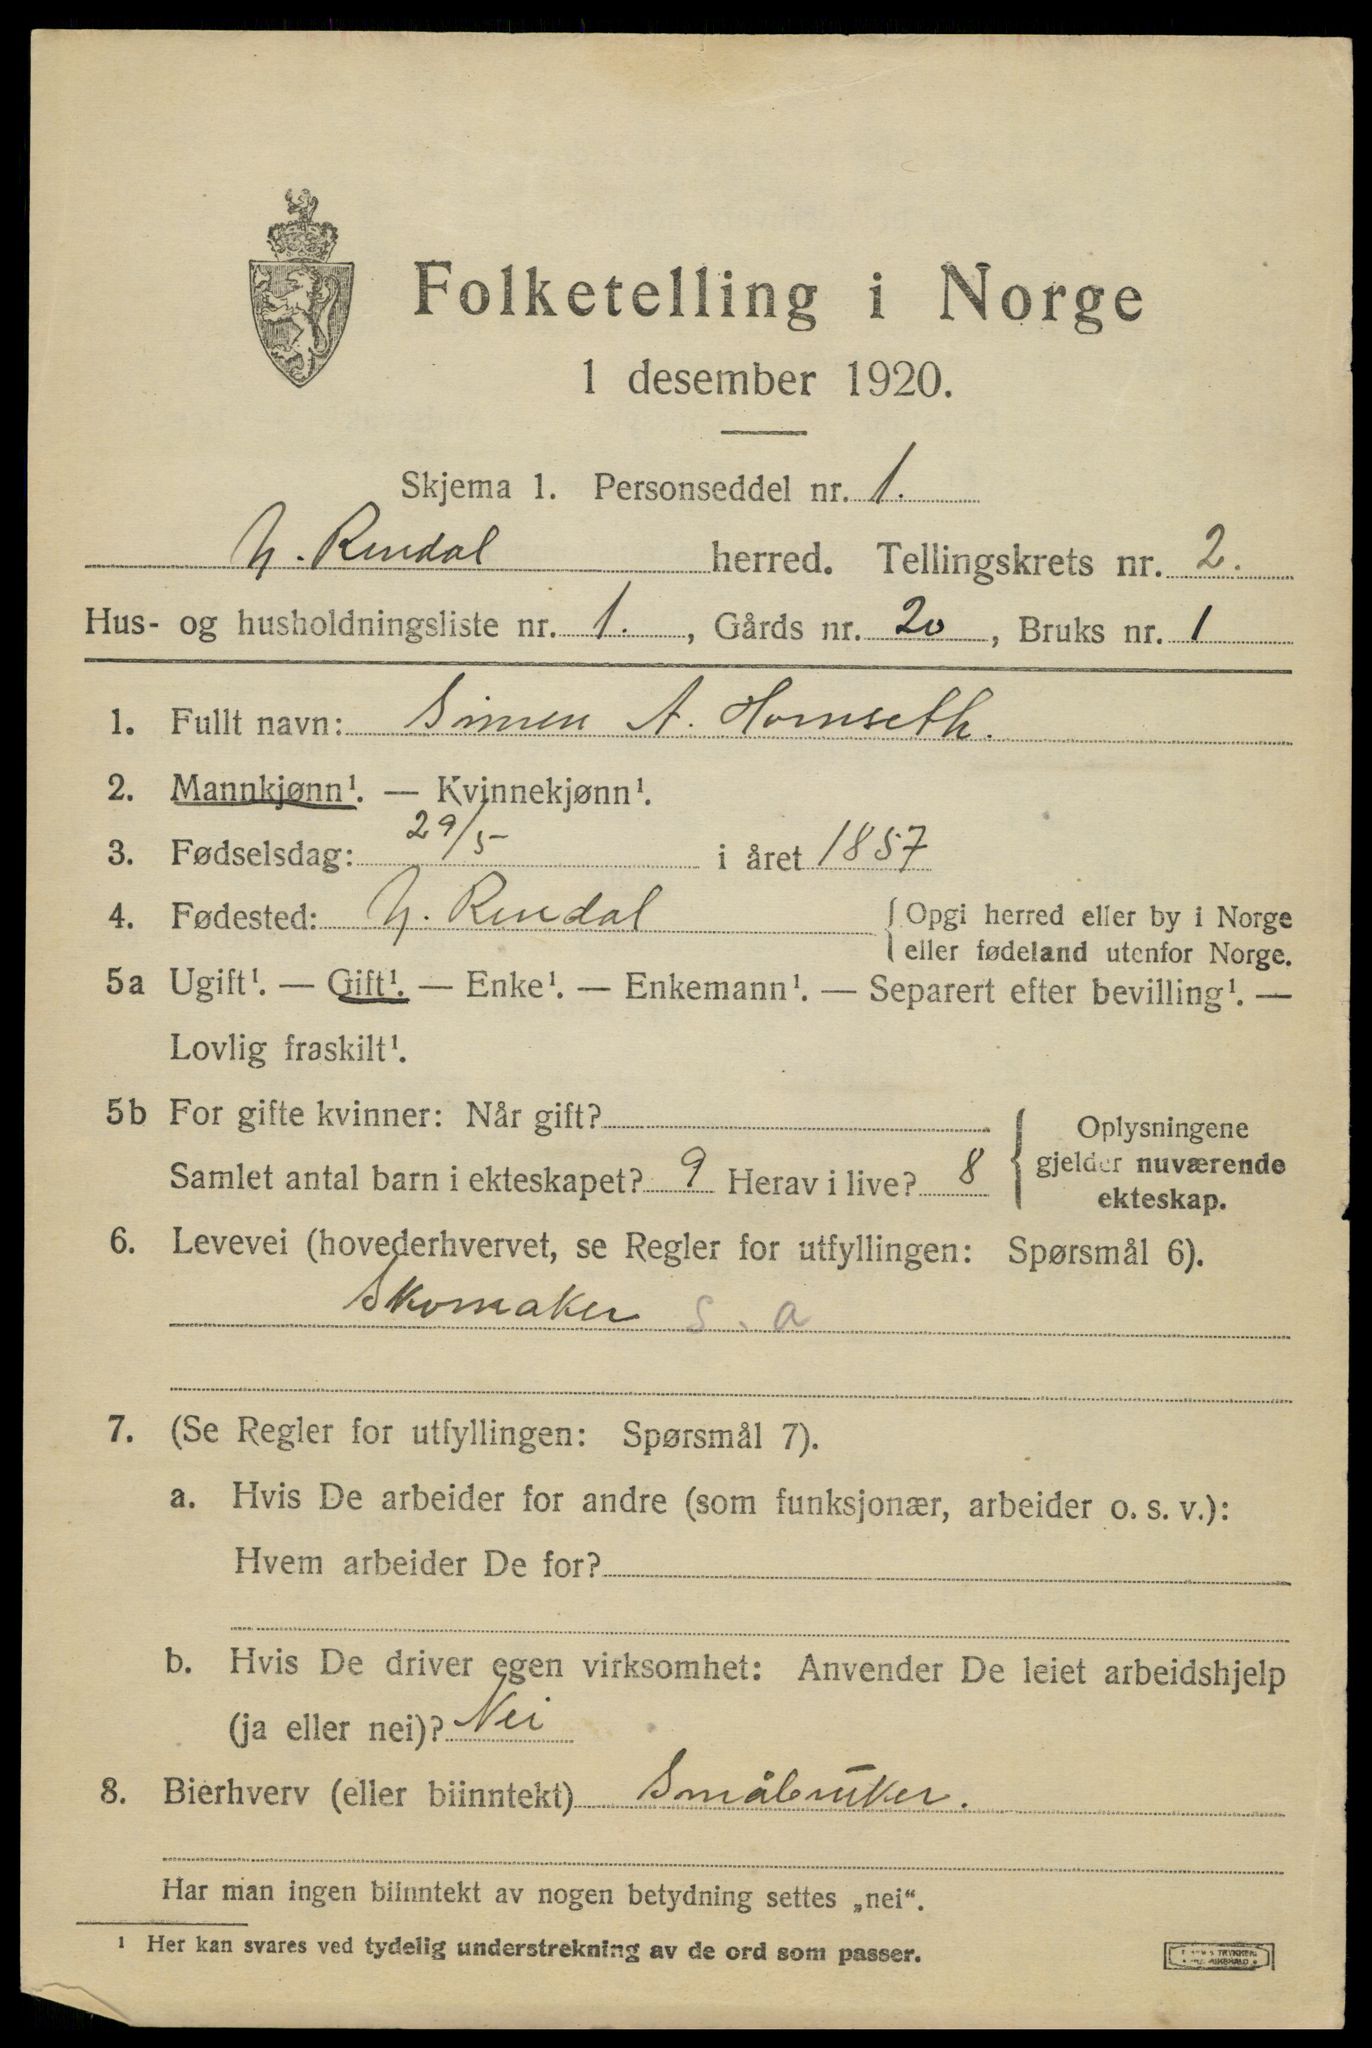 Folketelling i Norge
1 desember 1920.
Skjema 1. Personseddel nr. 1.
Y. Rendal herred. Tellingskrets nr. 2.
Hus- og husholdningsliste nr. 1., Gårds nr. 20, Bruks nr. 1
1. Fullt navn: Simen A. Hornseth.
2. Mannkjønn¹. — Kvinnekjønn¹.
3. Fødselsdag: 29/5 i året 1857
4. Fødested: Y. Rendal {Opgi herred eller by i Norge
eller fødeland utenfor Norge.
5a Ugift¹. — Gift¹. — Enke¹. — Enkemann¹. — Separert efter bevilling¹. —
Lovlig fraskilt¹.
5b For gifte kvinner: Når gift?
Samlet antal barn i ekteskapet? 9 Herav i live? 8
{Oplysningene
gjelder nuværende
ekteskap.
6. Levevei (hovederhvervet, se Regler for utfyllingen: Spørsmål 6).
Skomaker s. a
7. (Se Regler for utfyllingen: Spørsmål 7).
a. Hvis De arbeider for andre (som funksjonær, arbeider o. s. v.):
Hvem arbeider De for?
b. Hvis De driver egen virksomhet: Anvender De leiet arbeidshjelp
(ja eller nei)? Nei
8. Bierhverv (eller biinntekt) Småbruker.
Har man ingen biinntekt av nogen betydning settes „nei“.
¹ Her kan svares ved tydelig understrekning av de ord som passer.